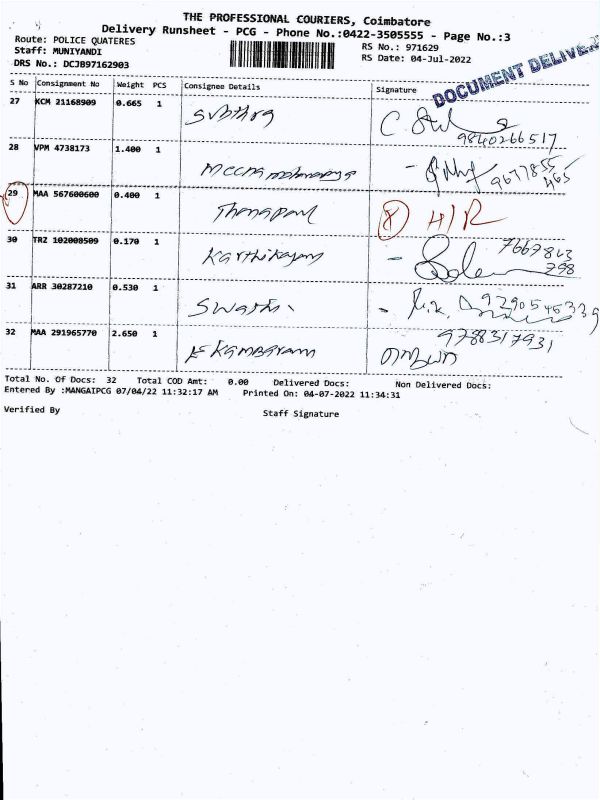 THE PROFESSIONAL COURIERS, Coimbatore
Delivery Runsheet - PCG - Phone No.:0422-3505555 - Page No.:3
Route: POLICE QUATERES
RS No.: 971629
Staff: MUNIYANDI
RS Date: 04-Jul-2022
DRS No.: DCJB97162903
DOCUMENT DELIVE
S No Consignment No Weight PCS Consignee Details Signature
27 KCM 21168909 0.665 1
9840266517
28 VPM 4738173 1.400 1 Meena
9677855
465
29 MAA 567600600 0.400 1 Thangapaul H/R
30 TRZ 102008509 0.170 1 Karthikayan 7667843
798
31 ARR 30287210 0.530 1 Swathi
32 MAA 291965770 2.650 1 9788317931
Total No. Of Docs: 32 Total COD Amt: 0.00 Delivered Docs: Non Delivered Docs:
Entered By :MANGAIPCG 07/04/22 11:32:17 AM Printed On: 04-07-2022 11:34:31
Verified By Staff Signature